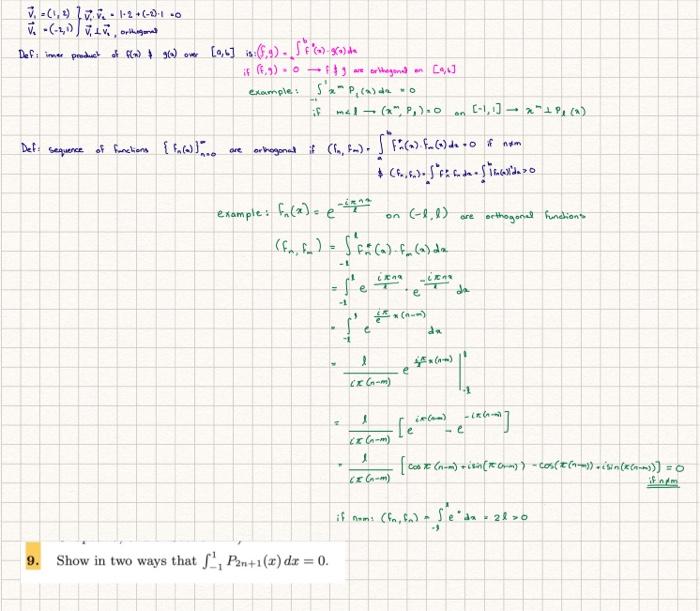 V⃗₁ = (1, 2) } V⃗₁·V⃗₂ = 1·2 + (-2)·1 = 0
V⃗₂ = (-2, 1) } V⃗₁ ⊥ V⃗₂, orthogonal
Def: inner product of f(x) & g(x) over [a,b] is: (f,g) = ∫ₐᵇ f*(x)·g(x) dx
if (f,g) = 0 → f & g are orthogonal on [a,b]
example: ∫₋₁¹ xᵐ Pₗ(x) dx = 0
if m<l → (xᵐ, Pₗ) = 0 on [-1,1] → xᵐ ⊥ Pₗ(x)
Def: sequence of functions {fₙ(x)}ₙ₌₀^∞ are orthogonal if (fₙ, fₘ) = ∫ₐᵇ fₙ*(x)·fₘ(x) dx = 0 if n≠m
& (fₙ,fₙ) = ∫ₐᵇ fₙ* fₙ dx = ∫ₐᵇ |fₙ(x)|² dx > 0
example: fₙ(x) = e^(-iπnx/l) on (-l, l) are orthogonal functions
(fₙ, fₘ) = ∫₋ₗˡ fₙ*(x)·fₘ(x) dx
= ∫₋ₗˡ e^(iπnx/l) · e^(-iπnx/l) dx
= ∫₋ₗˡ e^(iπ/l x(n-m)) dx
= l/(iπ(n-m)) e^(iπ/l x(n-m)) |₋ₗˡ
= l/(iπ(n-m)) [e^(iπ(n-m)) - e^(-iπ(n-m))]
= l/(iπ(n-m)) [cos π(n-m) + i sin(π(n-m)) - cos(π(n-m)) + i sin(π(n-m))] = 0
if n≠m
if n=m: (fₙ, fₙ) = ∫₋ₗˡ e⁰ dx = 2l > 0
9. Show in two ways that ∫₋₁¹ P₂ₙ₊₁(x) dx = 0.